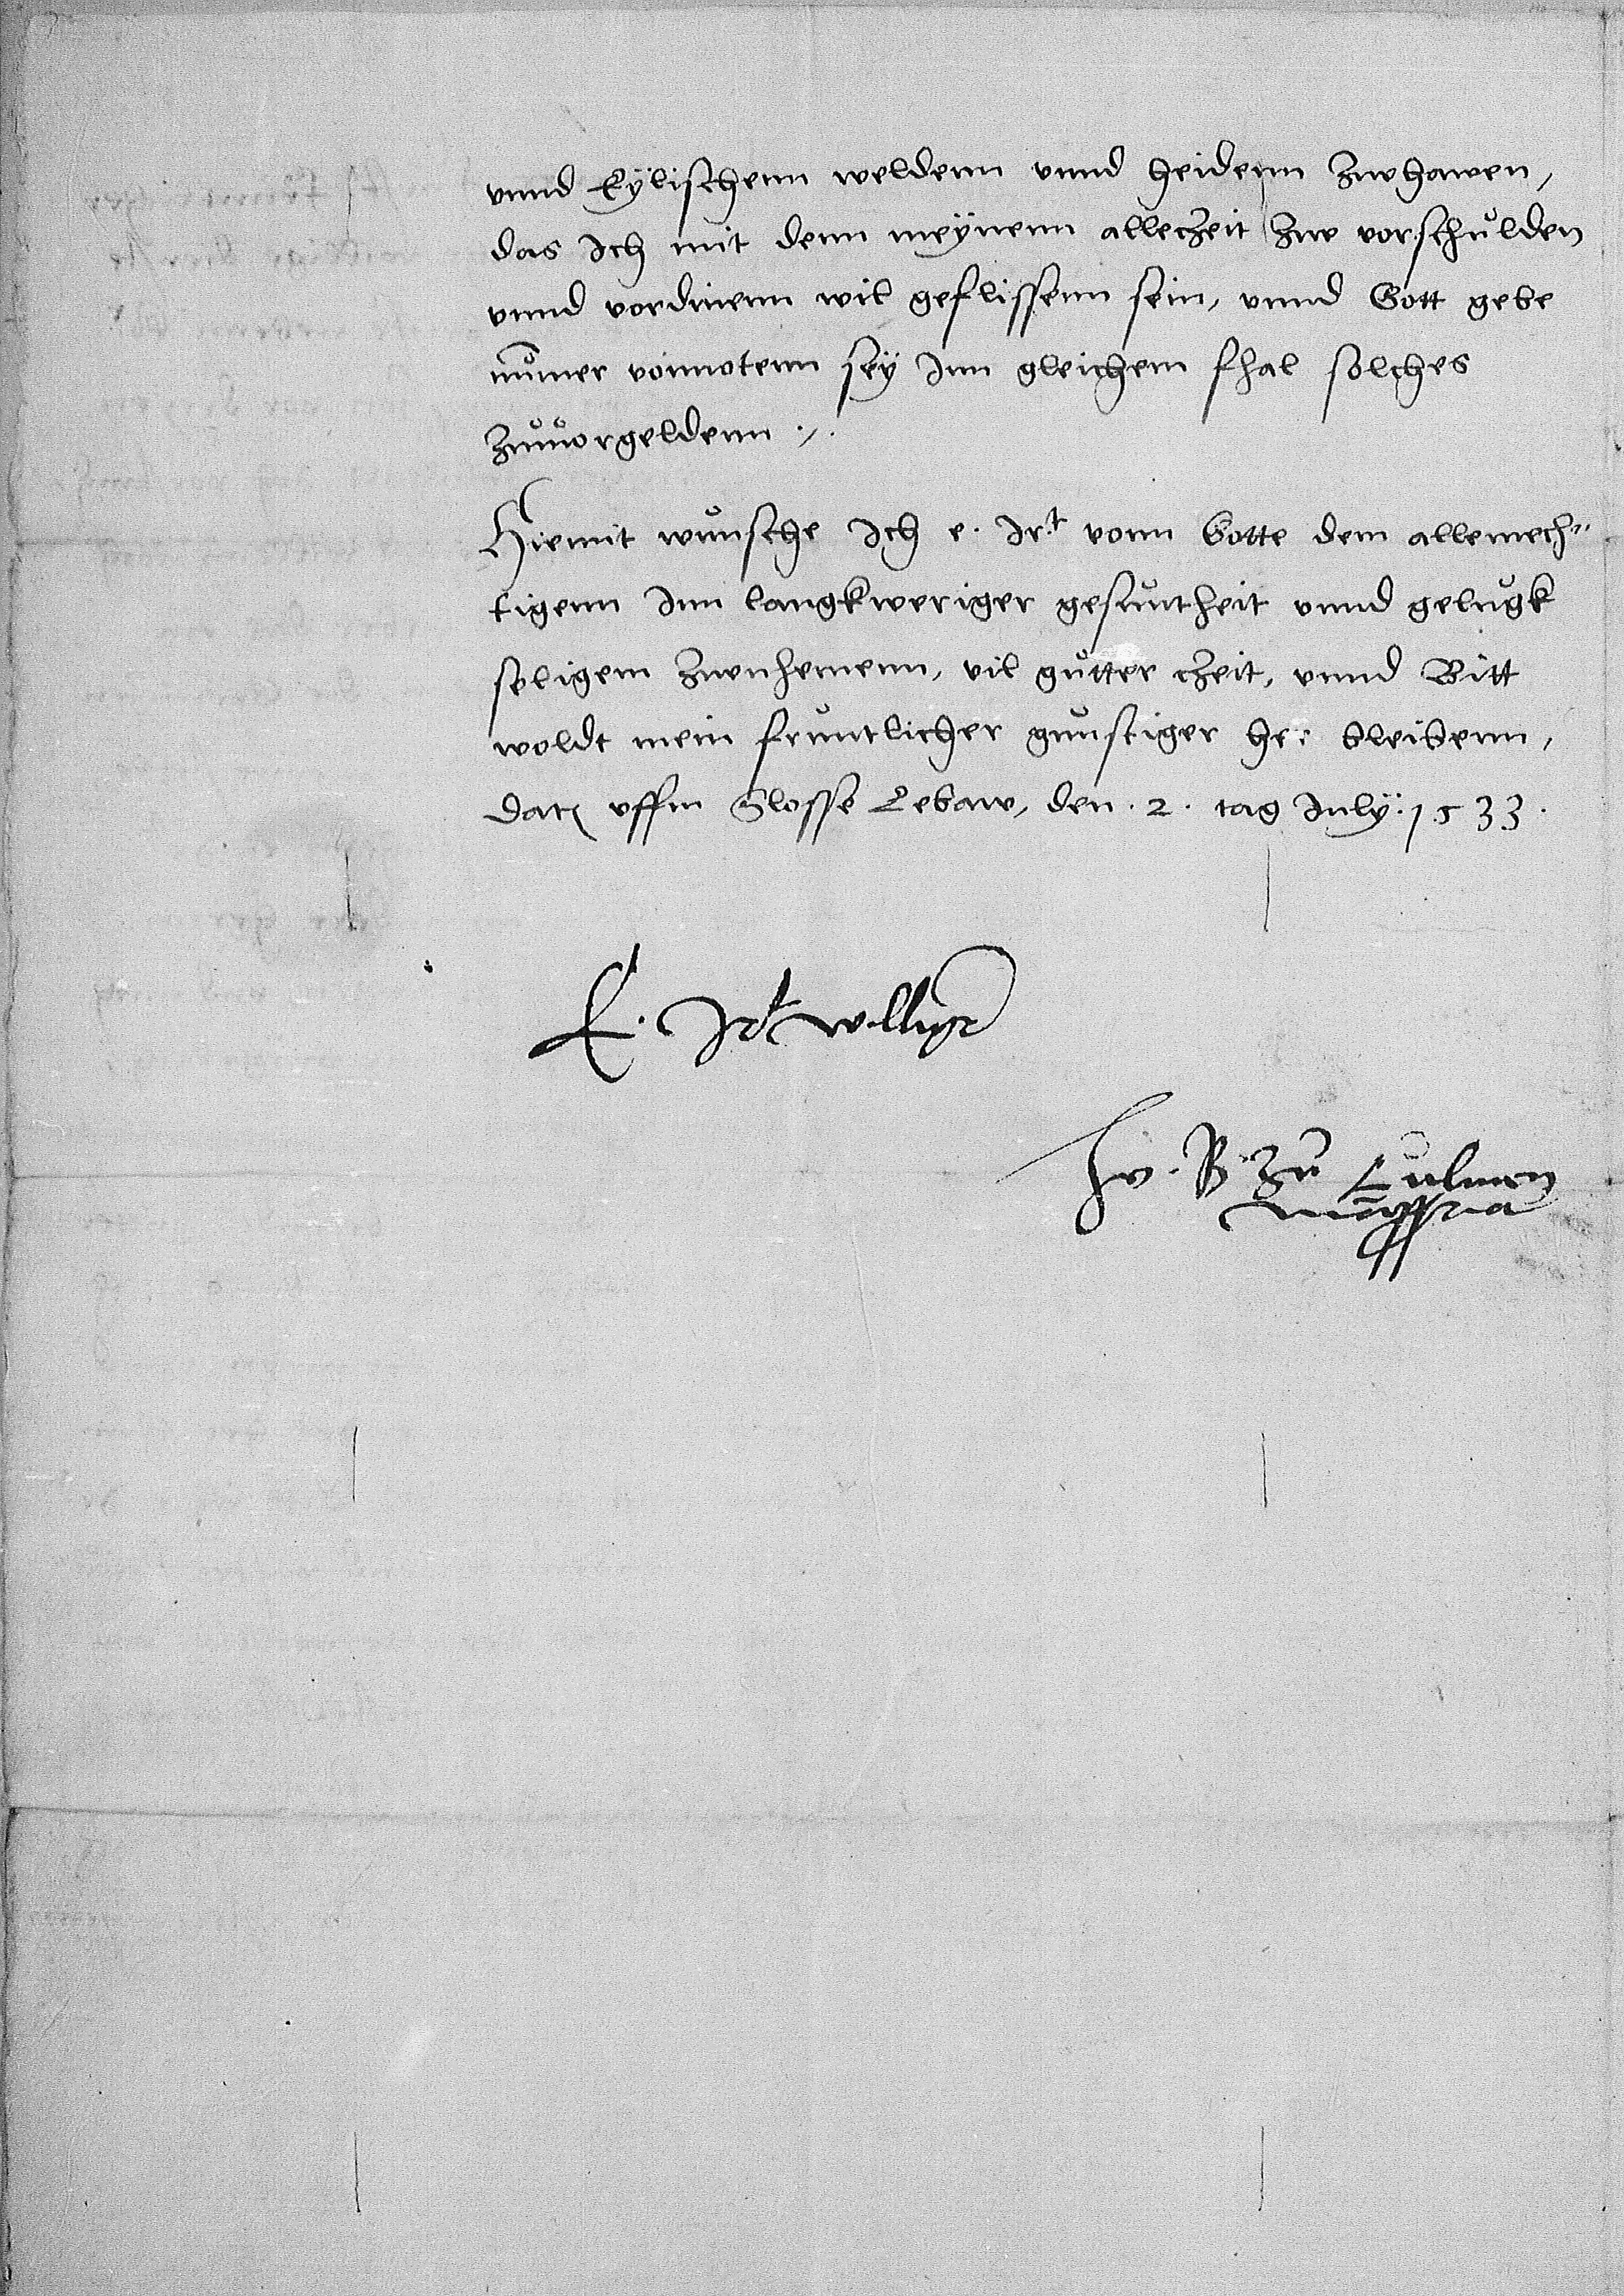 vnnd Eÿlischenn weldenn vnnd heidenn zwhawen,
das Ich mit denn meÿnenn alleczeit zw vorschulden
vnnd vordinenn wil geflissenn sein, vnnd Gott gebe
num̄er vonnotenn seÿ Inn gleichem fhal solches
zuuorgeldenn ./.
Hiemit wunsche Ich e. Irt vonn Gotte dem allemech"
tigenn Inn langkweriger gesuntheit vnnd gelugk
seligem zwnhemenn, vil gutter czeit, vnnd Bitt
woldt mein fruntlicher gunstiger her bleibenn,
dat vffm Slosse Lebaw, den .2. tag Julÿ: 1533.
E. Irt williger
Jo. B zu Culmen
māppria